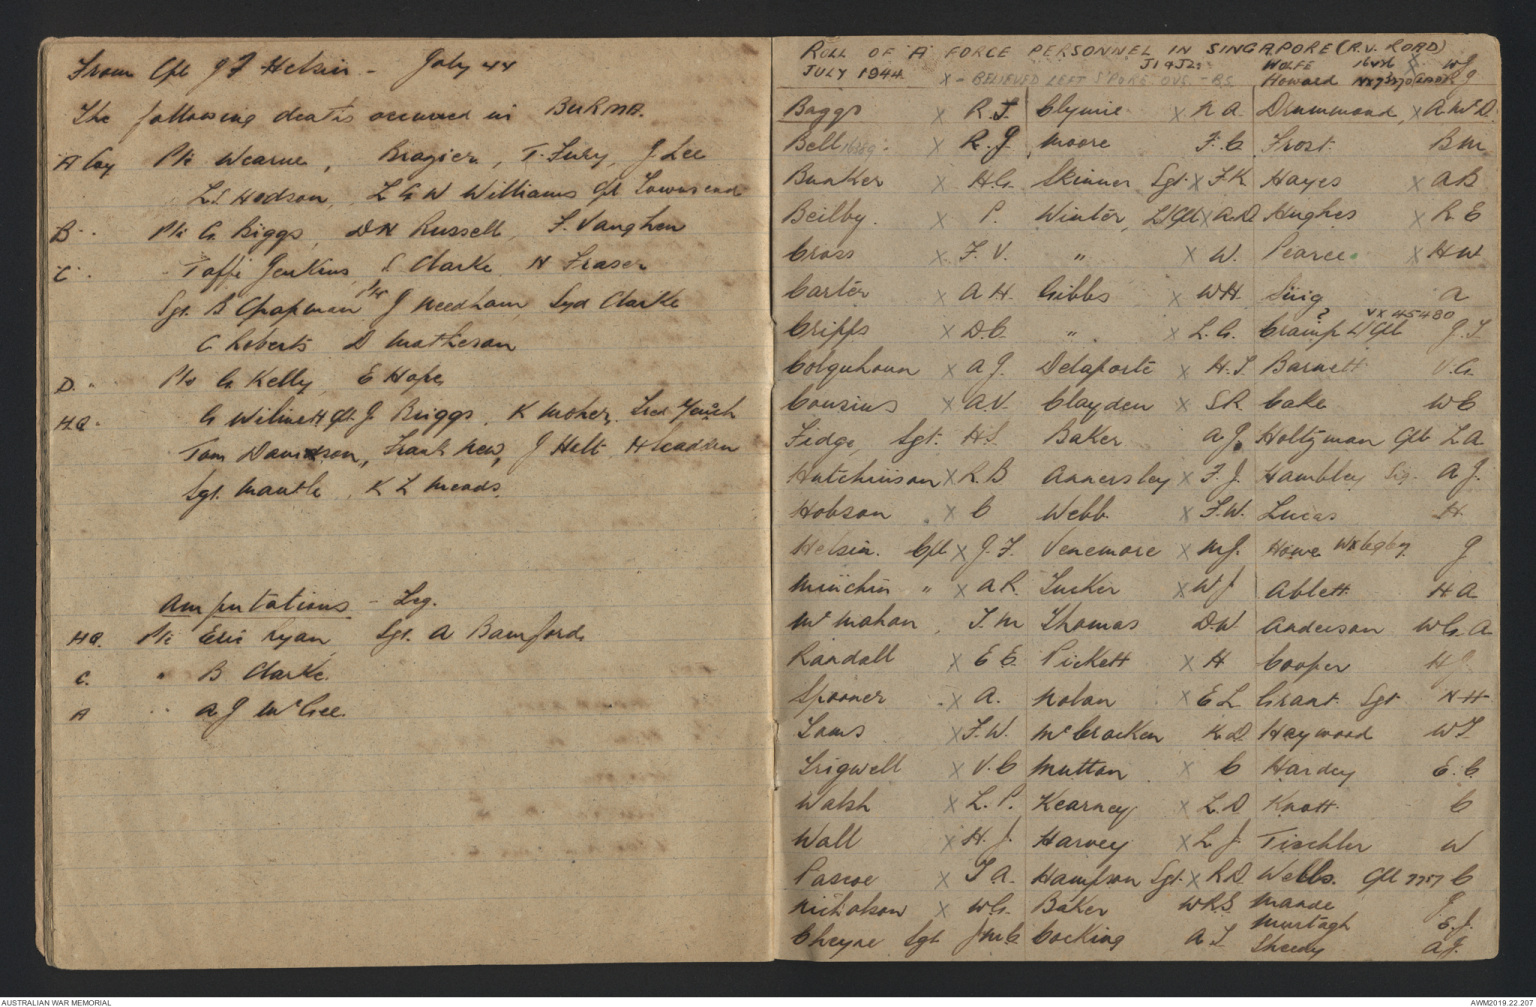 From Cpl J F Helsin - July 44
The following deaths occurred in BURMA.
A Coy Pte Wearne, Brazier, T. Fury, J Lee
Lt Hodson, L G W Williams Cpl Townsend
B " Pte G. Biggs, D N Russell, F. Vaughan
C " Taffi Jenkins, S Clarke N Fraser
Sgt. B Chapman Pte J Needham Syd Clarke
C Roberts D Matheson
D. " Pte G Kelly, E Hope
HQ. G Wilmett Cpl. J Briggs, K Moher,
Tom Davidson, Frank New, J Holt H
Sgt. Mantle, K L Meads.
Amputations - Leg.
HQ. Pte Eric Ryan, Sgt. A Bamford.
C. " B Clarke.
A " A J McGee.
ROLL OF 'A' FORCE PERSONNEL IN SINGAPORE (R.V. ROAD)
JULY 1944. X - BELIEVED LEFT S'PORE O/S. - B.S.
WOLFE X W J
Howard J
Baggs X R. J. Clymie X R A. Drummond, X A McD.
Bell X R. J. Moore F. C Frost. B M
Bunker X H.G. Skinner Sgt. X F. K Hayes X A B
Beilby. X P. Winter, L/Cpl X A. D Hughes X R E
Cross X F. V. " X W. Pearce. X H W
Carter X A H. Gibbs X W H. A
Cripps X D. C. " X L. G. Cramp ? L/Cpl VX 45480 J. T
Colquhoun X A J. Delaporte X H. T. Barnett V. G.
Cousins X A. V. Clayden X S R. Cake W C
Fidge, Sgt. H S. Baker A J. Holtzman Cpl L A
Hutchinson X R. B Annersley X F. J. Hambley Sig. A J.
Hobson X C Webb. X F. W. Lucas H.
Helsin. Cpl X J. F. Venemore X M J. Howe J
Minchin " X A. R. Tucker X W J Ablett H A
McMahon, T. M Thomas D. W Anderson W G. A
Randall X E E. Pickett X H Cooper H J
Spooner X A. Nolan X E L Grant Sgt N H
Toms X F. W. McCracken K D Heywood W T
Trigwell X V. C Mutton X C Hardey E. C.
Walsh X L. P. Kearney X L. D Knott C
Wall X H. J. Harvey X L J. Tischler W
Pascoe X T A. Hampson Sgt. X R. D. Webb. Cpl 7757 C
Nicholson X W G. Baker W R. S Maade J
Cheyne Sgt J M C Cocking A. T Murtagh E. J.
Sheedy A. J.
AUSTRALIAN WAR MEMORIAL
AWM2019.22.207